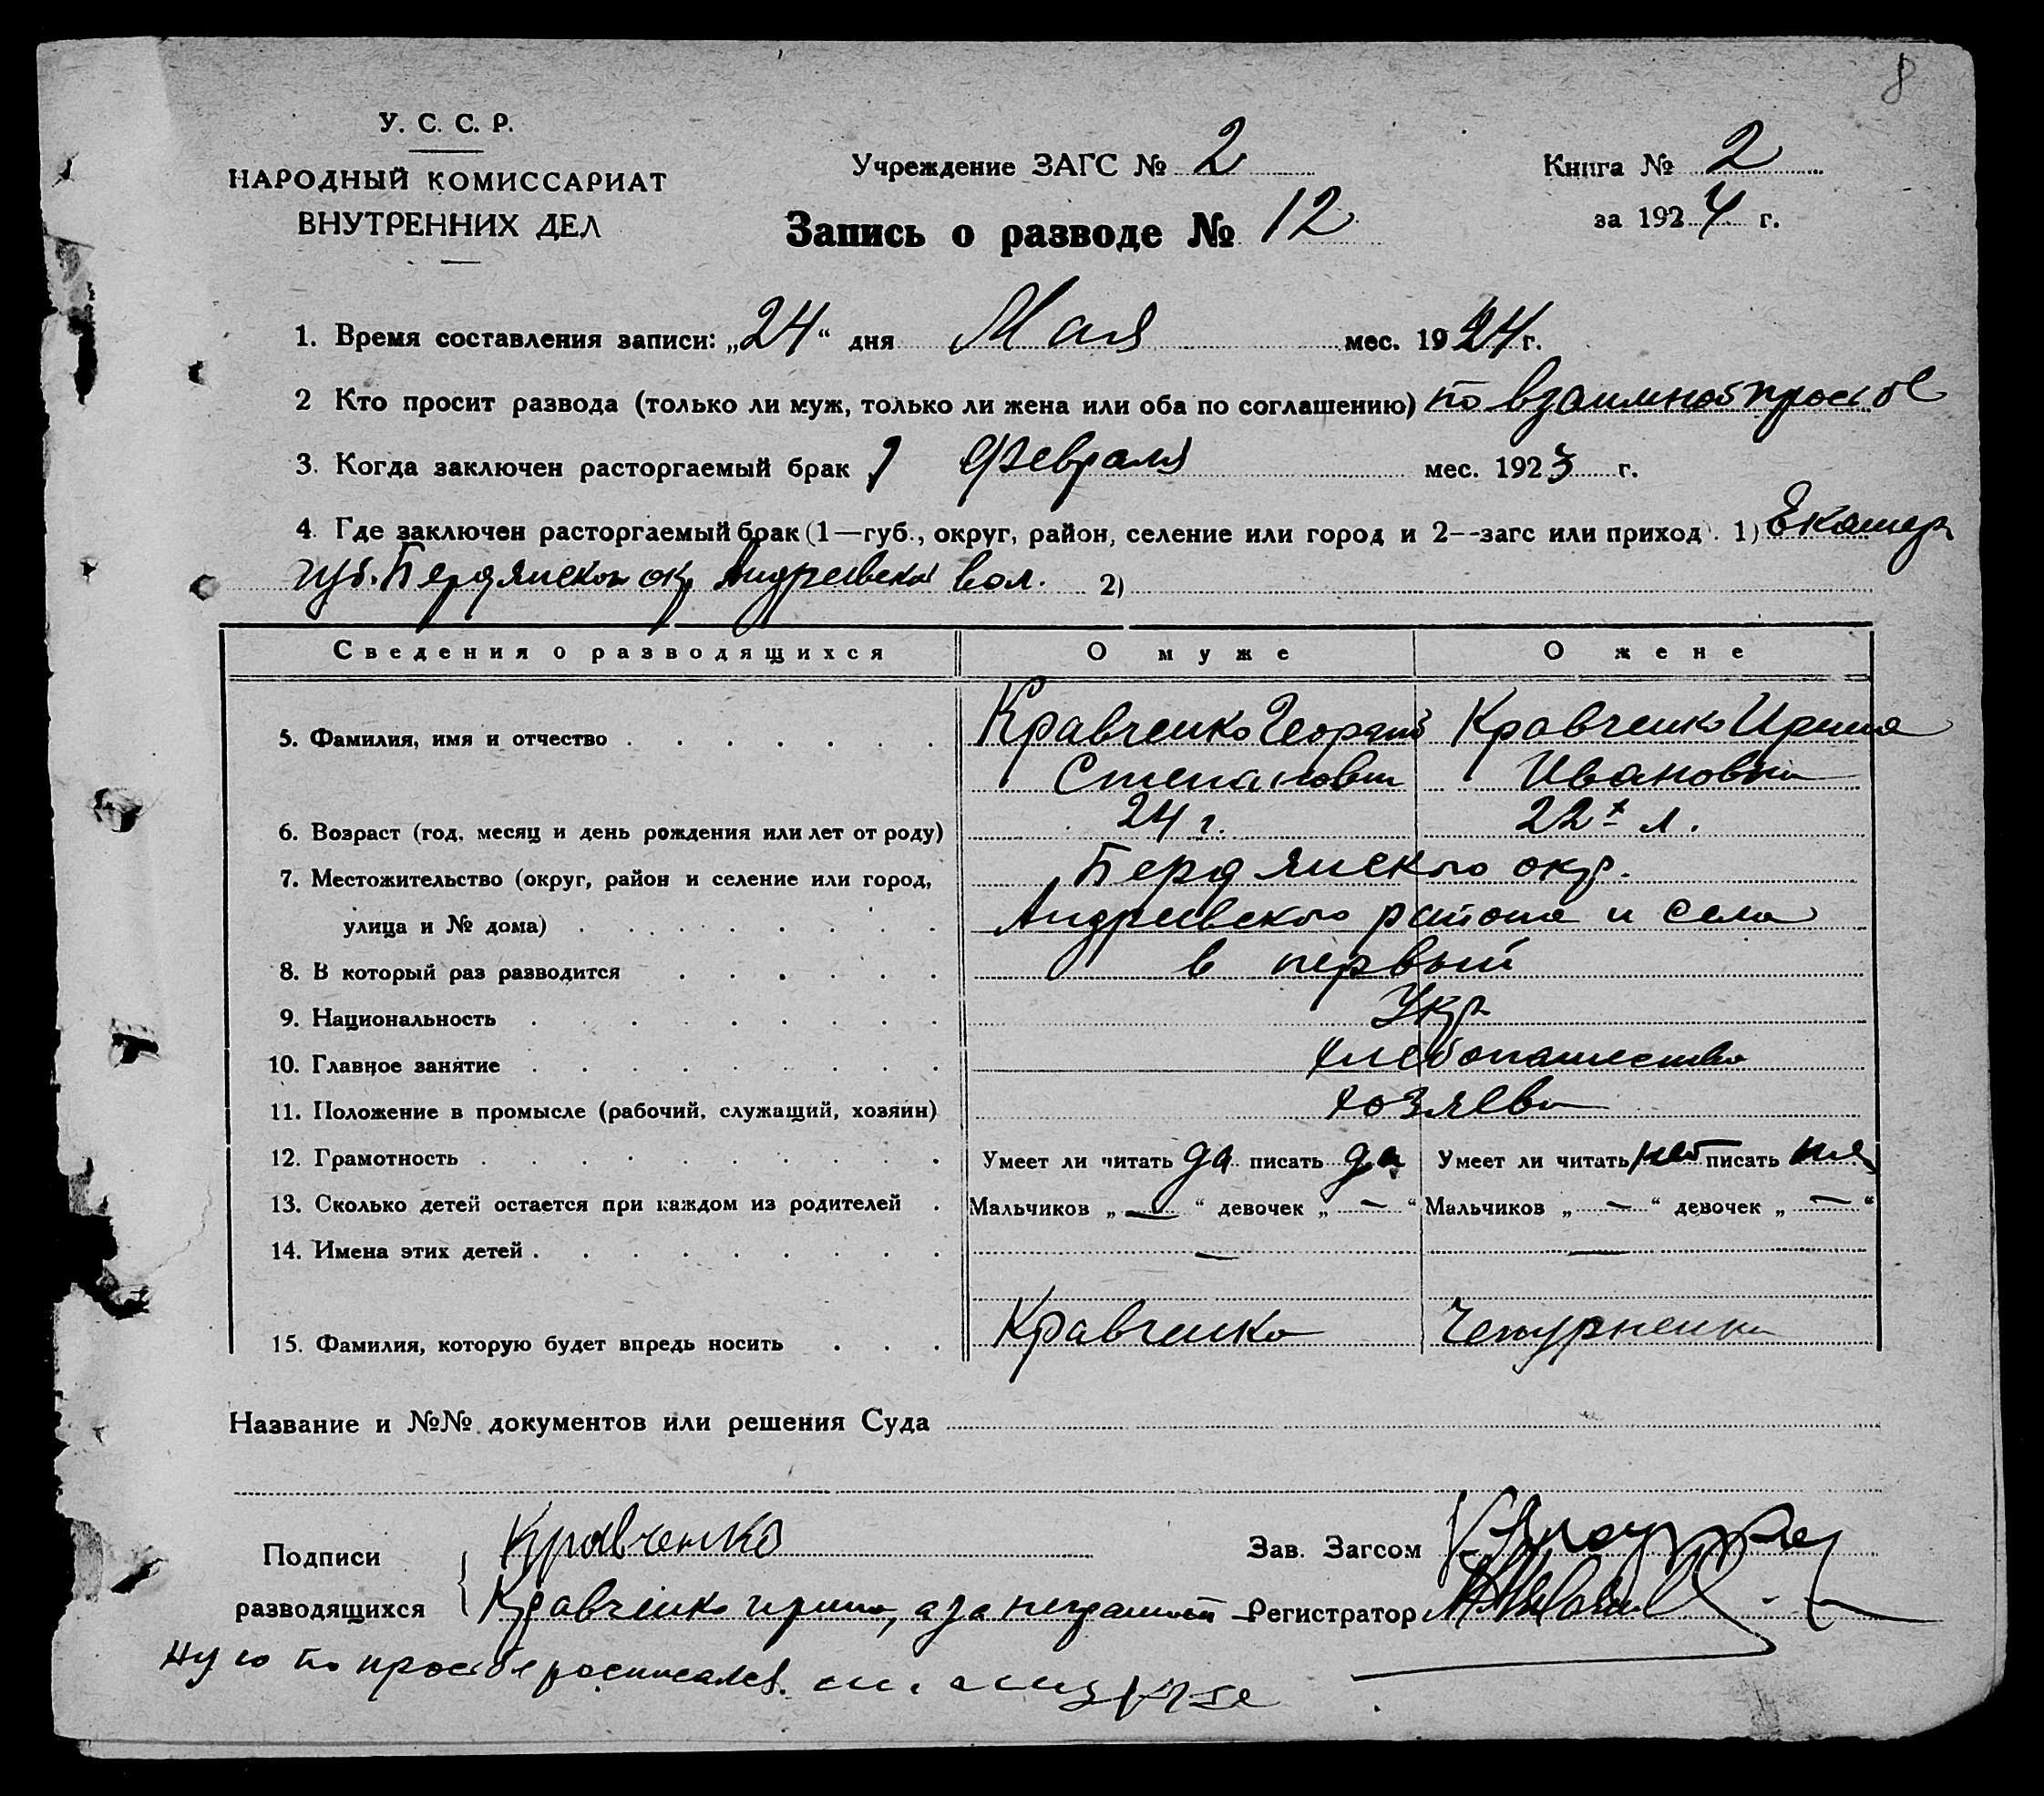 8
У. С. С. Р.
НАРОДНЫЙ КОМИССАРИАТ
ВНУТРЕННИХ ДЕЛ
Учреждение ЗАГС № 2
Книга № 2
за 1924 г.
Запись о разводе № 12
1. Время составления записи: „24“ дня Мая мес. 1924 г.
2 Кто просит развода (только ли муж, только ли жена или оба по соглашению) по взаимной просьбе
3. Когда заключен расторгаемый брак Февраля мес. 1923 г.
4. Где заключен расторгаемый брак (1—губ., округ, район, селение или город и 2--загс или приход). 1) Екатер
губ. Бердянского окр Андреевской вол. 2)
Сведения о разводящихся О муже О жене
5. Фамилия, имя и отчество Кравченко Георгий Кравченко Ирина
Степанович Ивановна
6. Возраст (год, месяц и день рождения или лет от роду) 24 г. 22х л.
7. Местожительство (округ, район и селение или город, Бердянского окр.
улица и № дома) Андреевского района и села
8. В который раз разводится в первый
9. Национальность Укр
10. Главное занятие хлебопашество
11. Положение в промысле (рабочий, служащий, хозяин) хозяева
12. Грамотность Умеет ли читать да писать да Умеет ли читать нет писать
13. Сколько детей остается при каждом из родителей Мальчиков „ — “ девочек „ — “ Мальчиков „ — “ девочек „ — “
14. Имена этих детей — —
15. Фамилия, которую будет впредь носить Кравченко Чепурненко
Название и №№ документов или решения Суда
Подписи Кравченко Зав. Загсом
разводящихся Кравченко Ирина, а за неграмот Регистратор
ную по просьбе росписался